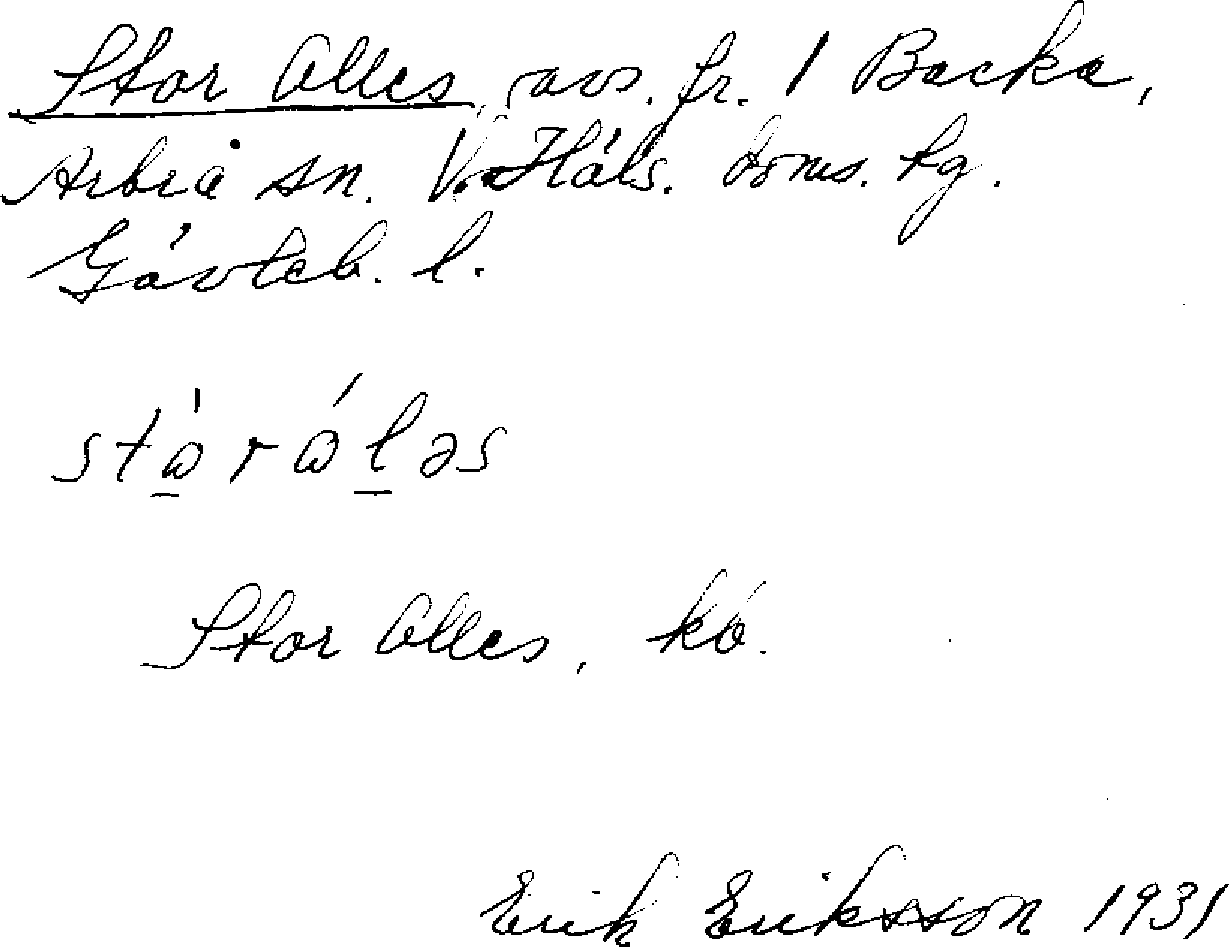 Stor Olles, avs. fr. 1 Backa,
Arbrå sn. V. Häls. doms. tg.
Gävleb. l.
stὼrώləs
Stor Olles, kó.
Erik Eriksson 1931